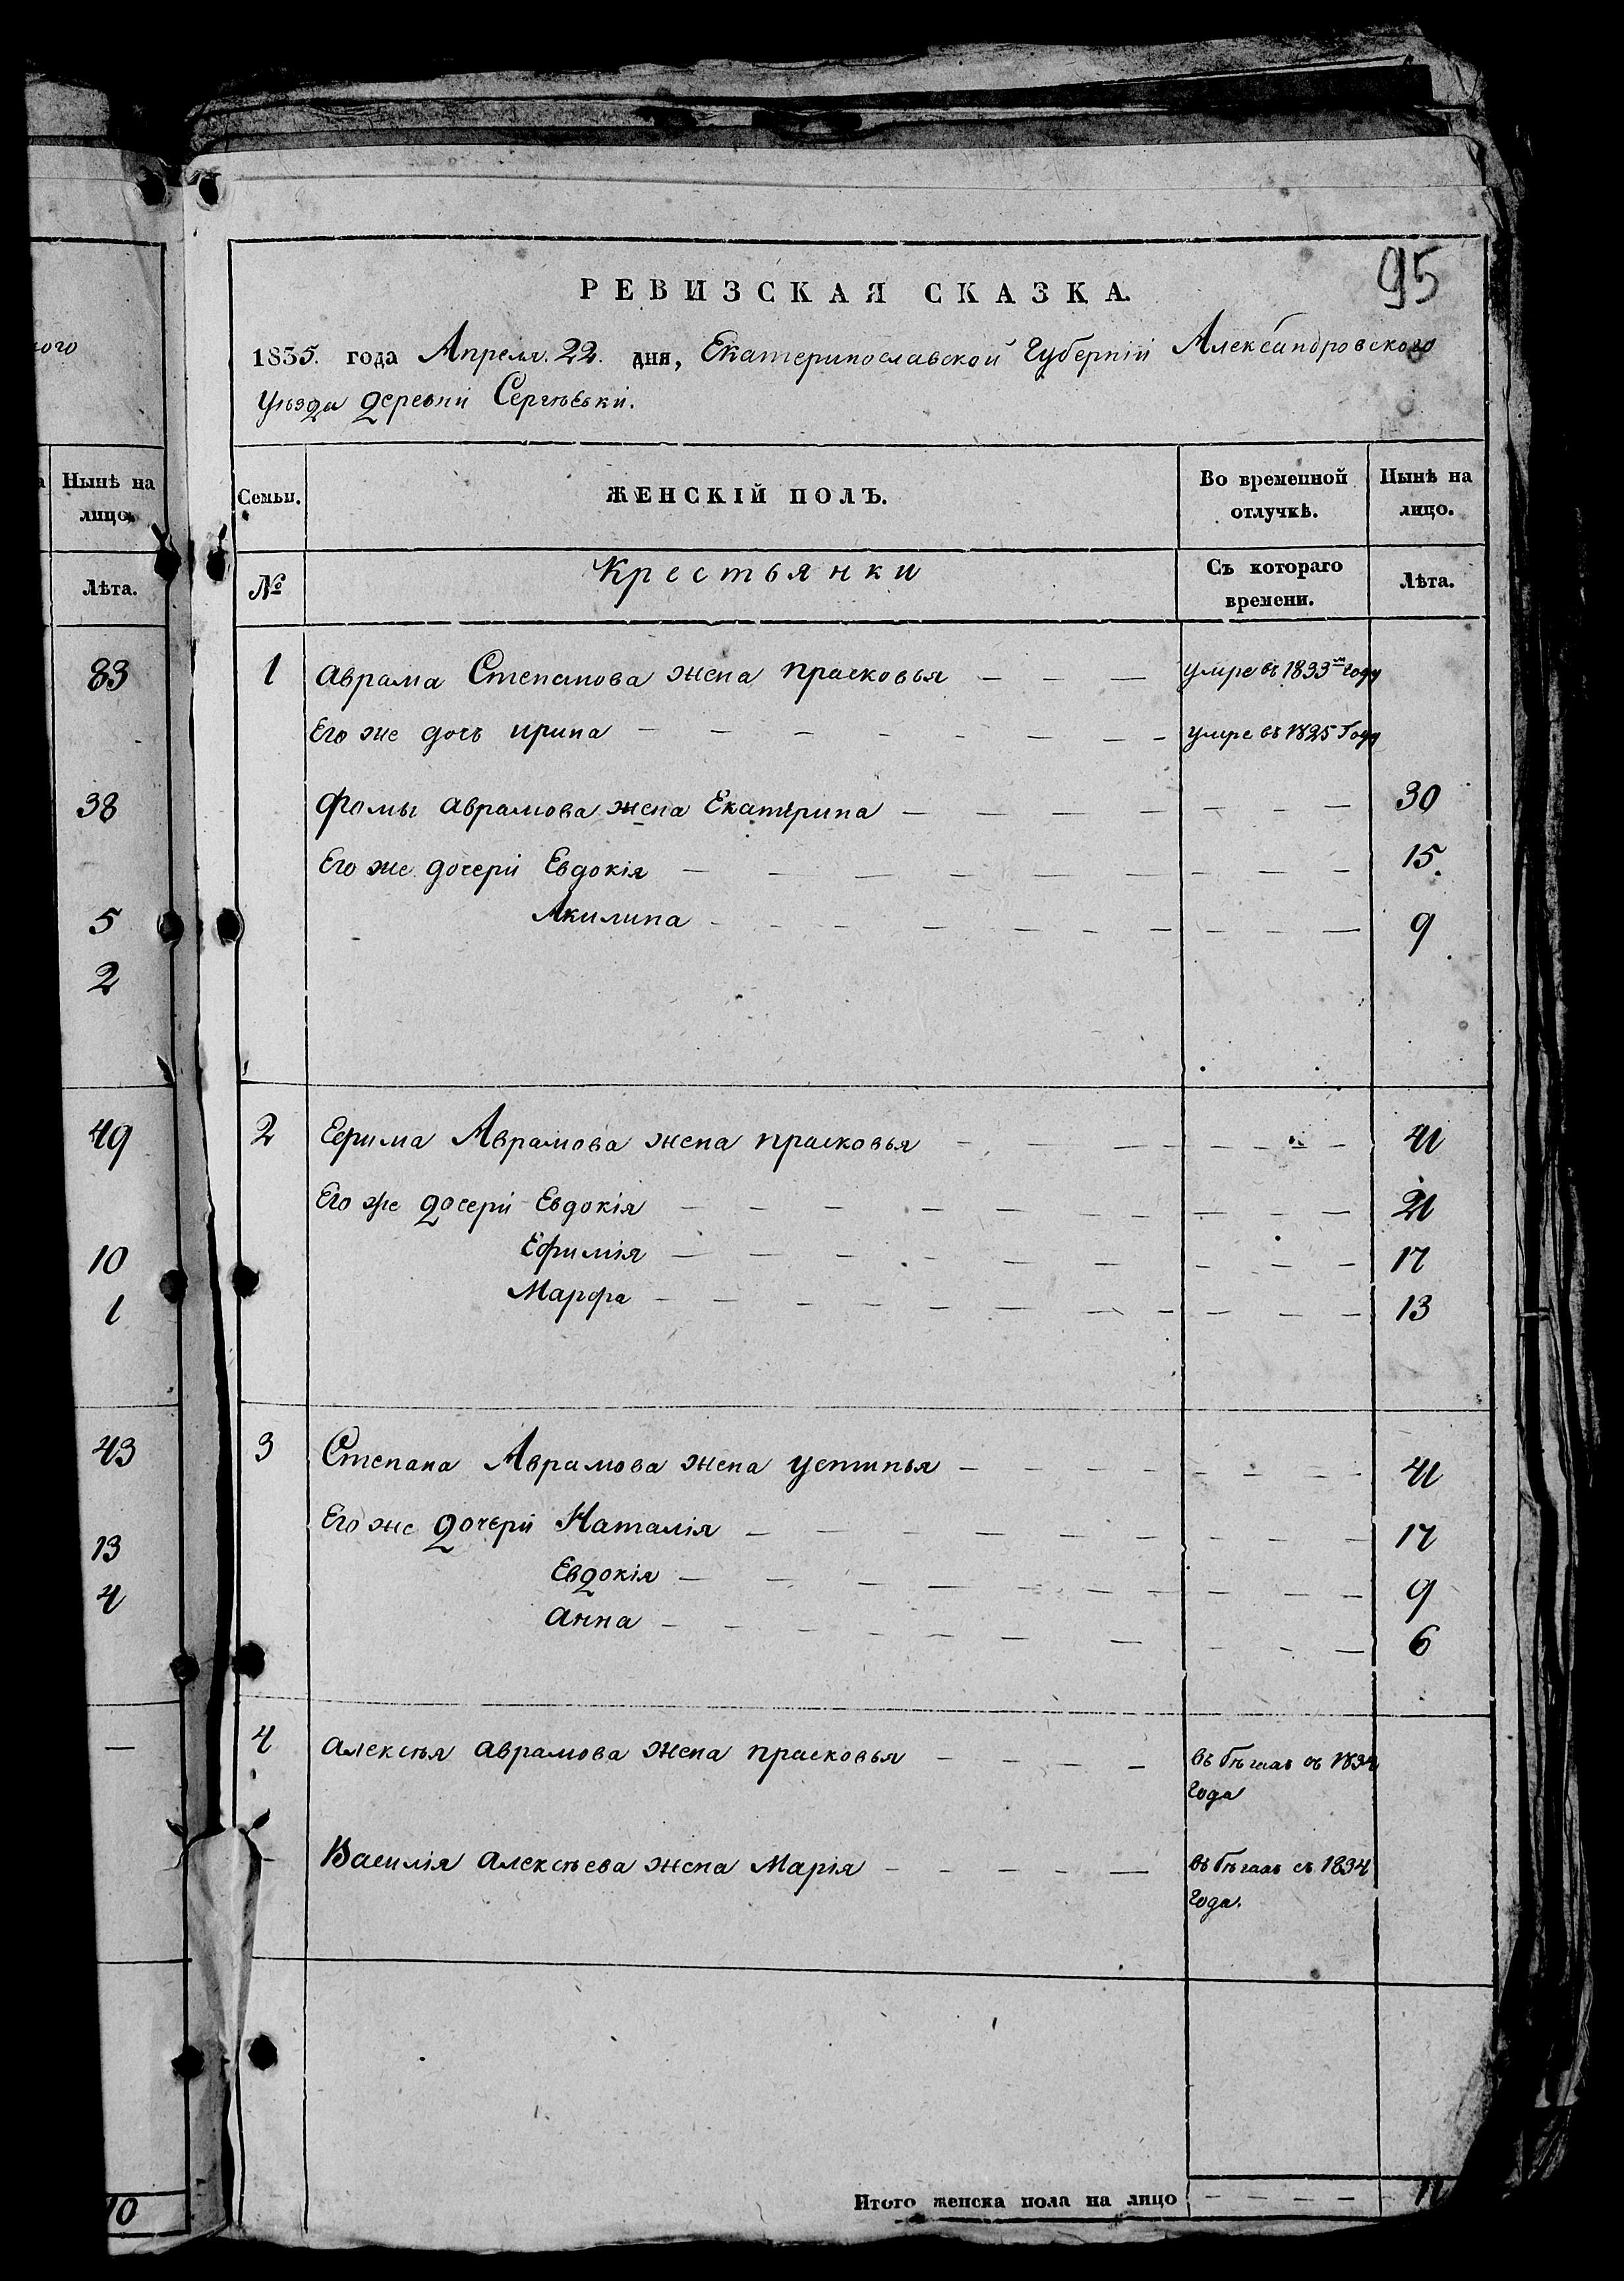 95
РЕВИЗСКАЯ СКАЗКА.
1835. года Апреля 22. дня, Екатеринославской Губерніи Александровского
Уѣзда деревни Сергѣевки.
ого
Нынѣ на
лицо.
Лѣта.
83
38
5
2
49
10
1
43
13
4
—
10
Семьи.
ЖЕНСКІЙ ПОЛЪ.
Во временной
отлучкѣ.
Нынѣ на
лицо.
№
Крестьянки
Съ котораго
времени.
Лѣта.
1 Аврама Степанова жена Прасковья — — — умре въ 1833м году
Его же дочь Ирина — — — — — — — — умре въ 1825 Году
Фомы Аврамова жена Екатерина — — — — — — — 30
Его же дочери Евдокія — — — — — — — — — — 15
Акилина — — — — — — — — — — 9
2 Ефима Аврамова жена Прасковья — — — — — — — 41
Его же дочери Евдокія — — — — — — — — — — 21
Ефимія — — — — — — — — — — 17
Марфа — — — — — — — — — — — 13
3 Степана Аврамова жена Устинья — — — — — — — — 41
Его же дочери Наталія — — — — — — — — — 17
Евдокія — — — — — — — — — — 9
Анна — — — — — — — — — — 6
4 Алексѣя Аврамова жена Прасковья — — — — въ бѣгахъ съ 1834
года
Василія Алексѣева жена Марія — — — — — въ бѣгахъ съ 1834
года.
Итого женска пола на лицо — — — — 11